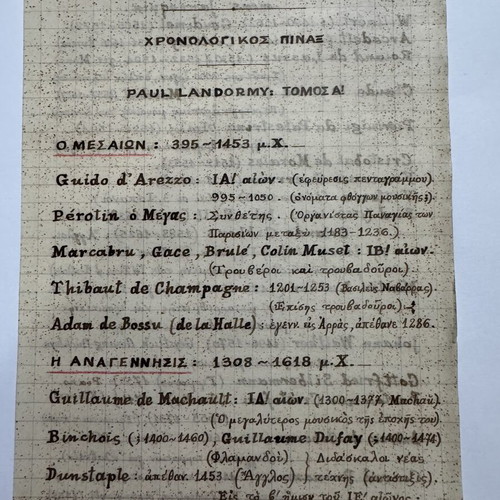 ΧΡΟΝΟΛΟΓΙΚΟΣ ΠΙΝΑΞ
PAUL LANDORMY: ΤΟΜΟΣ Α!
Ο ΜΕΣΑΙΩΝ : 395~1453 μ.Χ.
Guido d'Arezzo: ΙΑ! αἰών. (ἐφεύρεσις πενταγράμμου).
995-1050. (ὀνόματα φθόγγων μουσικῆς;)
Pérotin ὁ Μέγας: Συνθέτης. (Ὀργανίστας Παναγίας τῶν
Παρισίων μεταξὺ 1183-1236.)
Marcabru, Gace, Brulé, Colin Muset: ΙΒ! αἰων.
(Τρουβέροι καὶ τρουβαδοῦροι)
Thibaut de Champagne: 1201-1253 (Βασιλεὺς Ναβάρρας)
(Ἐπίσης τρουβαδοῦροι)
Adam de Bossu (de la Halle): ἐγενν. εἰς Ἀρράς, ἀπέθανε 1286.
Η ΑΝΑΓΕΝΝΗΣΙΣ : 1308 ~ 1618 μ.Χ.
Guillaume de Machault: ΙΔ! αἰών. (1300-1377, Μπαχώ)
(Ὁ μεγαλύτερος μουσικὸς τῆς ἐποχῆς του).
Binchois (;1400-1460), Guillaume Dufay (;1400-1474)
(Φλαμανδοὶ) Διδάσκαλοι νέας
Dunstaple: ἀπέθαν. 1453 (Ἄγγλος) τέχνης (ἀντίστιξις)
Εἰς τὸ β' ἥμισυ τοῦ ΙΕ! αἰῶνος